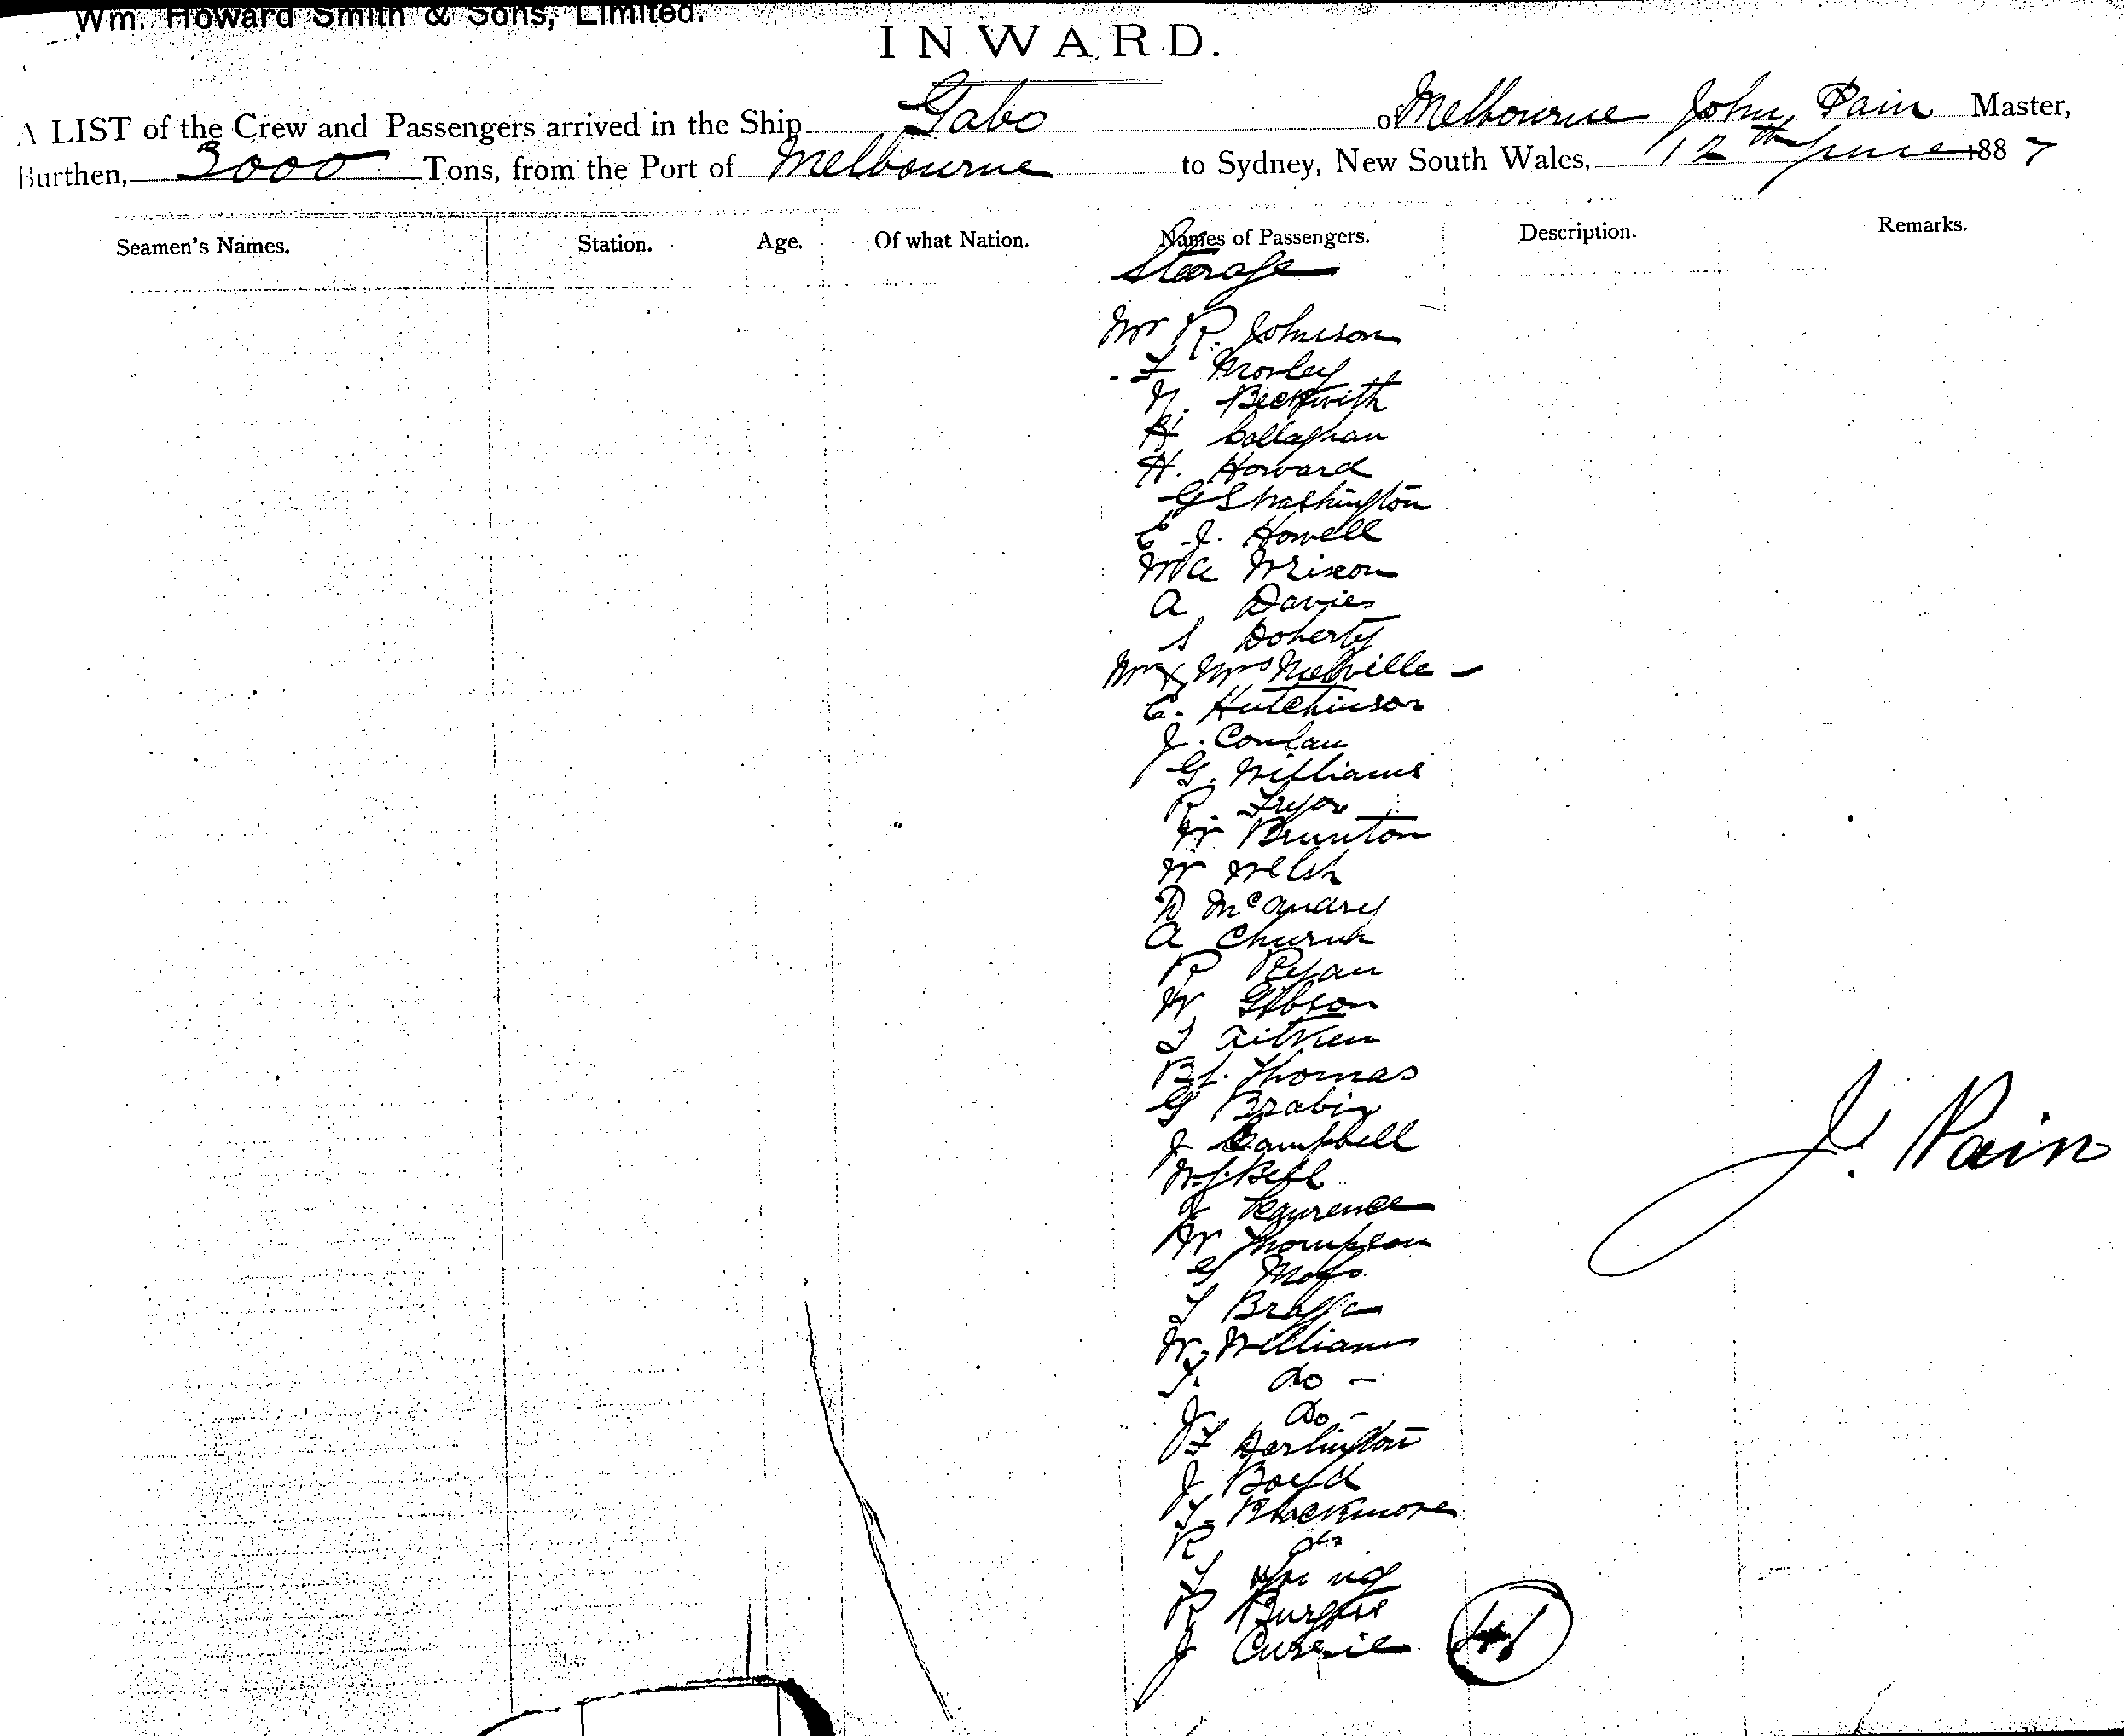 Wm. Howard Smith & Sons, Limited.
INWARD.
A LIST of the Crew and Passengers arrived in the Ship Gabo of Melbourne John Pain Master,
Burthen, 3000 Tons, from the Port of Melbourne to Sydney, New South Wales, 12th June 1887
Seamen's Names. Station. Age. Of what Nation. Names of Passengers. Description. Remarks.
Steerage
Mr R. Johnson
F Morley
Beckwith
H Callaghan
H. Howard
G S Washington
E. J. Howell
A Davies
S Doherty
Mr & Mrs Melville
C. Hutchinson
J. Conlan
G. Williams
R. Fryor
W. Brunton
W Welsh
D
A Church
R Ryan
W Gibson
Aitken
Thomas
G Brabin
J Campbell
W. J. Bell
J Lawrence
W Thompson
G
T
W. Williams
T. do -
J do -
F Darlington
J Boyd
T. Blackmore
R do
T
R Burgess
J Currie
41
J. Pain